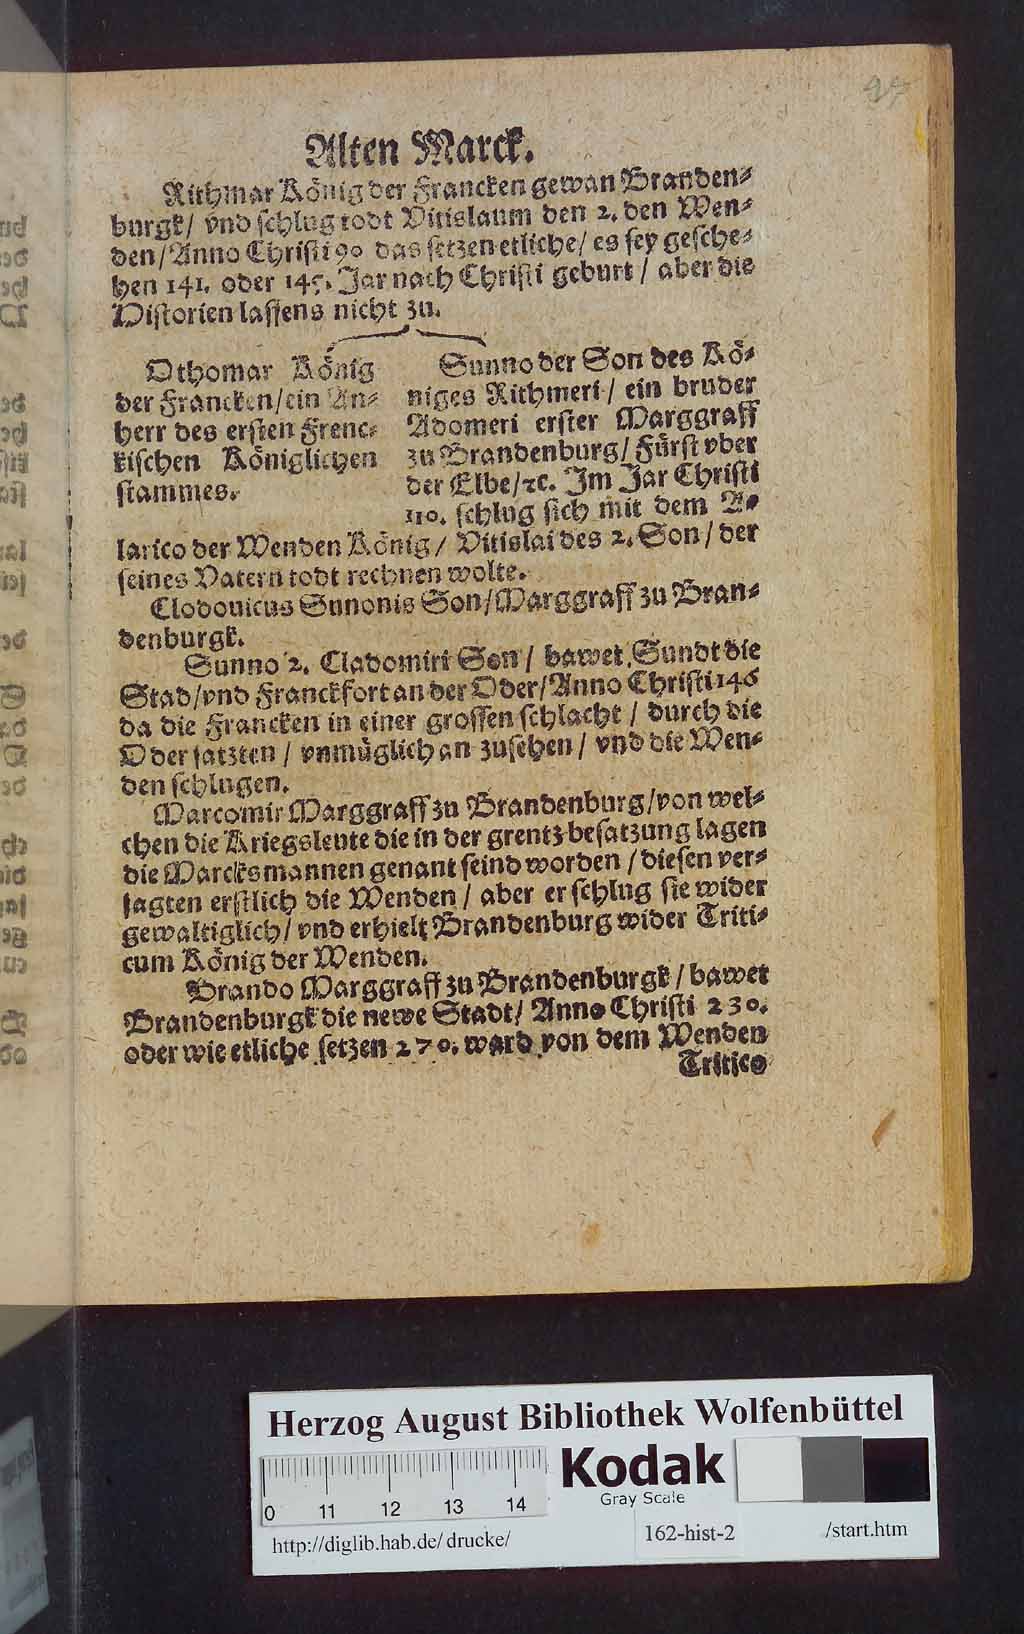 Alten Marck.
Rithmar König der Francken gewan Branden-
burgk/ vnd schlug todt Vitislaum den 2. den Wen-
den/ Anno Christi 90 das setzen etliche/ es sey gesche-
hen 141. oder 145. Jar nach Christi geburt/ aber die
Historien lassens nicht zu.
Othomar König
der Francken/ ein An-
herr des ersten Frenc-
kischen Königlichen
stammes.
Sunno der Son des Kö-
niges Rithmeri/ ein bruder
Adomeri erster Marggraff
zu Brandenburg/ Fürst vber
der Elbe/ ꝛc. Im Jar Christi
110. schlug sich mit dem A-
larico der Wenden König/ Vitislai des 2. Son/ der
seines Vatern todt rechnen wolte.
Clodouicus Sunonis Son/ Marggraff zu Bran-
denburgk.
Sunno 2. Cladomiri Son/ bawet Sundt die
Stad/ vnd Franckfort an der Oder/ Anno Christi 146
da die Francken in einer grossen schlacht/ durch die
Oder satzten/ vnmüglich an zusehen/ vnd die Wen-
den schlugen.
Marcomir Marggraff zu Brandenburg/ von wel-
chen die Kriegsleute die in der grentz besatzung lagen
die Marcksmannen genant seind worden/ diesen ver-
jagten erstlich die Wenden/ aber er schlug sie wider
gewaltiglich/ vnd erhielt Brandenburg wider Triti-
cum König der Wenden.
Brando Marggraff zu Brandenburgk/ bawet
Brandenburgk die newe Stadt/ Anno Christi 230.
oder wie etliche setzen 270. ward von dem Wenden
Tritico
Herzog August Bibliothek Wolfenbüttel
0 11 12 13 14
Kodak
Gray Scale
http://diglib.hab.de/drucke/ 162-hist-2 /start.htm